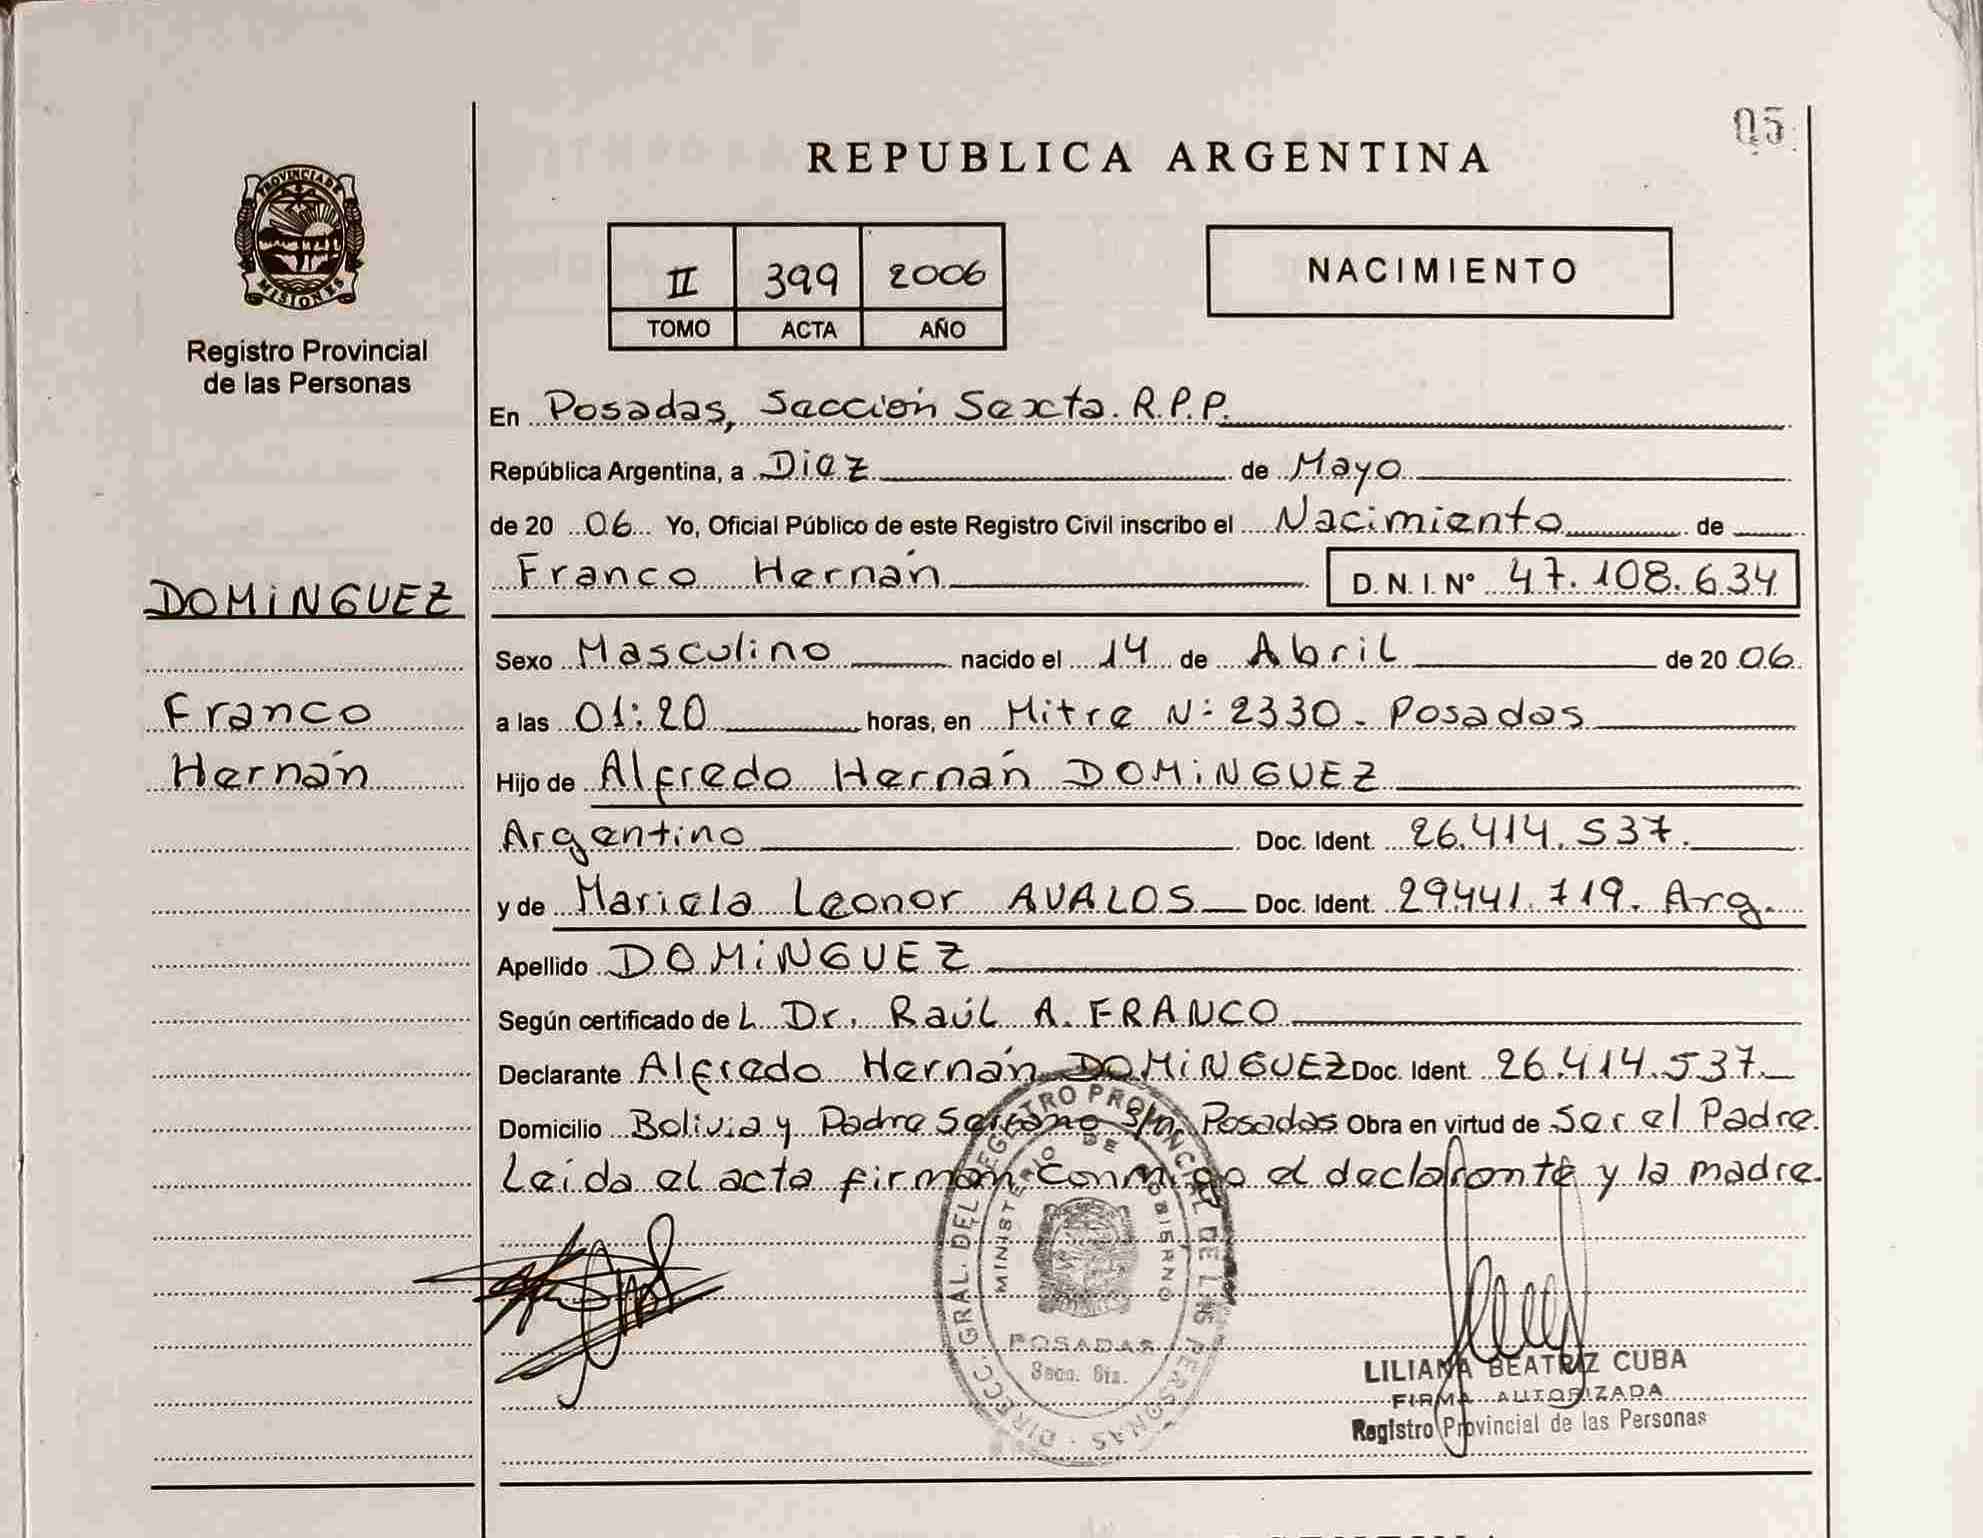 05
REPUBLICA ARGENTINA
PROVINCIA DE
MISIONES
Registro Provincial
de las Personas
II 399 2006
TOMO ACTA AÑO
NACIMIENTO
En Posadas, Sección Sexta. R.P.P.
República Argentina, a Diez de Mayo
de 20 06 Yo, Oficial Público de este Registro Civil inscribo el Nacimiento de
Franco Hernán D. N. I. N° 47.108.634
DOMiNGUEZ
Franco
Hernán
Sexo Masculino nacido el 14 de Abril de 20 06
a las 01:20 horas, en Mitre N: 2330. Posadas
Hijo de Alfredo Hernán DOMiNGUEZ
Argentino Doc. Ident. 26.414.537.
y de Mariela Leonor AVALOS Doc. Ident. 29441.719. Arg.
Apellido DOMiNGUEZ
Según certificado de L Dr. Raúl A. FRANCO
Declarante Alfredo Hernán DOMiNGUEZ Doc. Ident. 26.414.537.
Domicilio Bolivia y Padre Serrano S/n, Posadas Obra en virtud de Ser el Padre.
Leida el acta firman conmigo el declarante y la madre.
DIRECC. GRAL. DEL REGISTRO PROVINCIAL DE LAS PERSONAS
MINISTERIO DE GOBIERNO
POSADAS
Secc. 6ta.
LILIANA BEATRIZ CUBA
FIRMA AUTORIZADA
Registro Provincial de las Personas